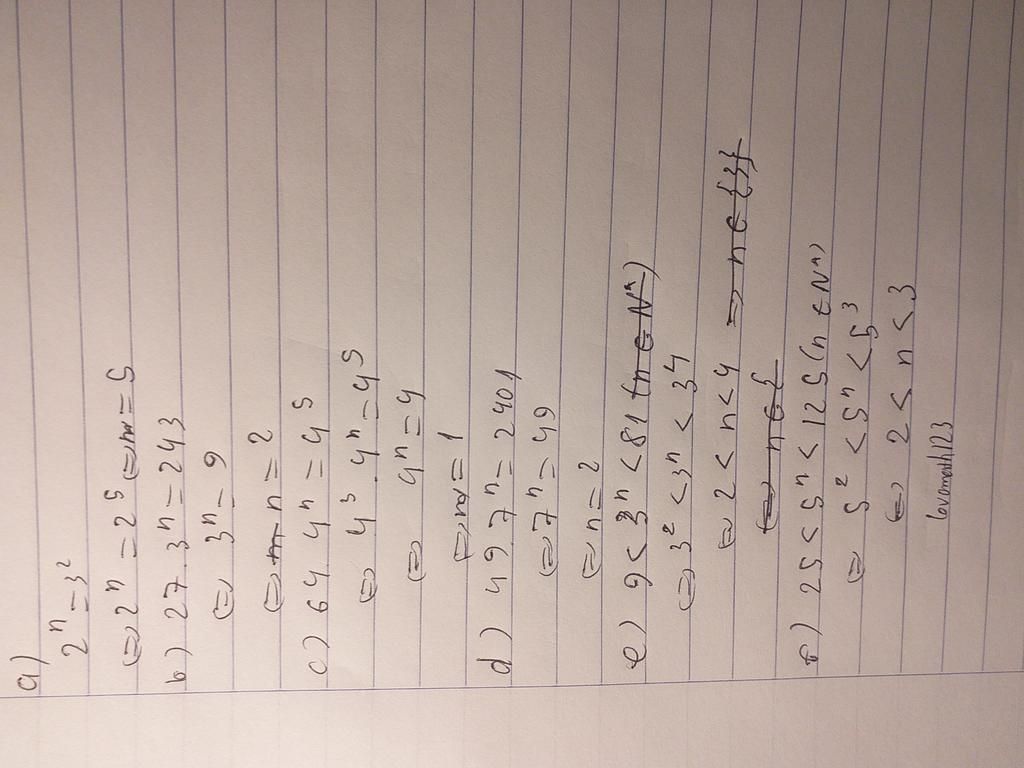 a)
2ⁿ = 3²
⇔ 2ⁿ = 2⁵ ⇔ n = 5
b) 27 . 3ⁿ = 243
⇔ 3ⁿ = 9
⇔ n = 2
c) 64 4ⁿ = 4⁵
⇔ 4³ . 4ⁿ = 4⁵
⇔ 4ⁿ = 4
⇔ n = 1
d) 49 . 7ⁿ = 2401
⇔ 7ⁿ = 49
⇔ n = 2
e) 9 < 3ⁿ < 81 (n ∈ N*)
⇔ 3² < 3ⁿ < 3⁴
⇔ 2 < n < 4 ⇒ n ∈ {3}
⇔ n ∈ {
25 < 5ⁿ < 125 (n ∈ N*)
⇔ 5² < 5ⁿ < 5³
⇔ 2 < n < 3